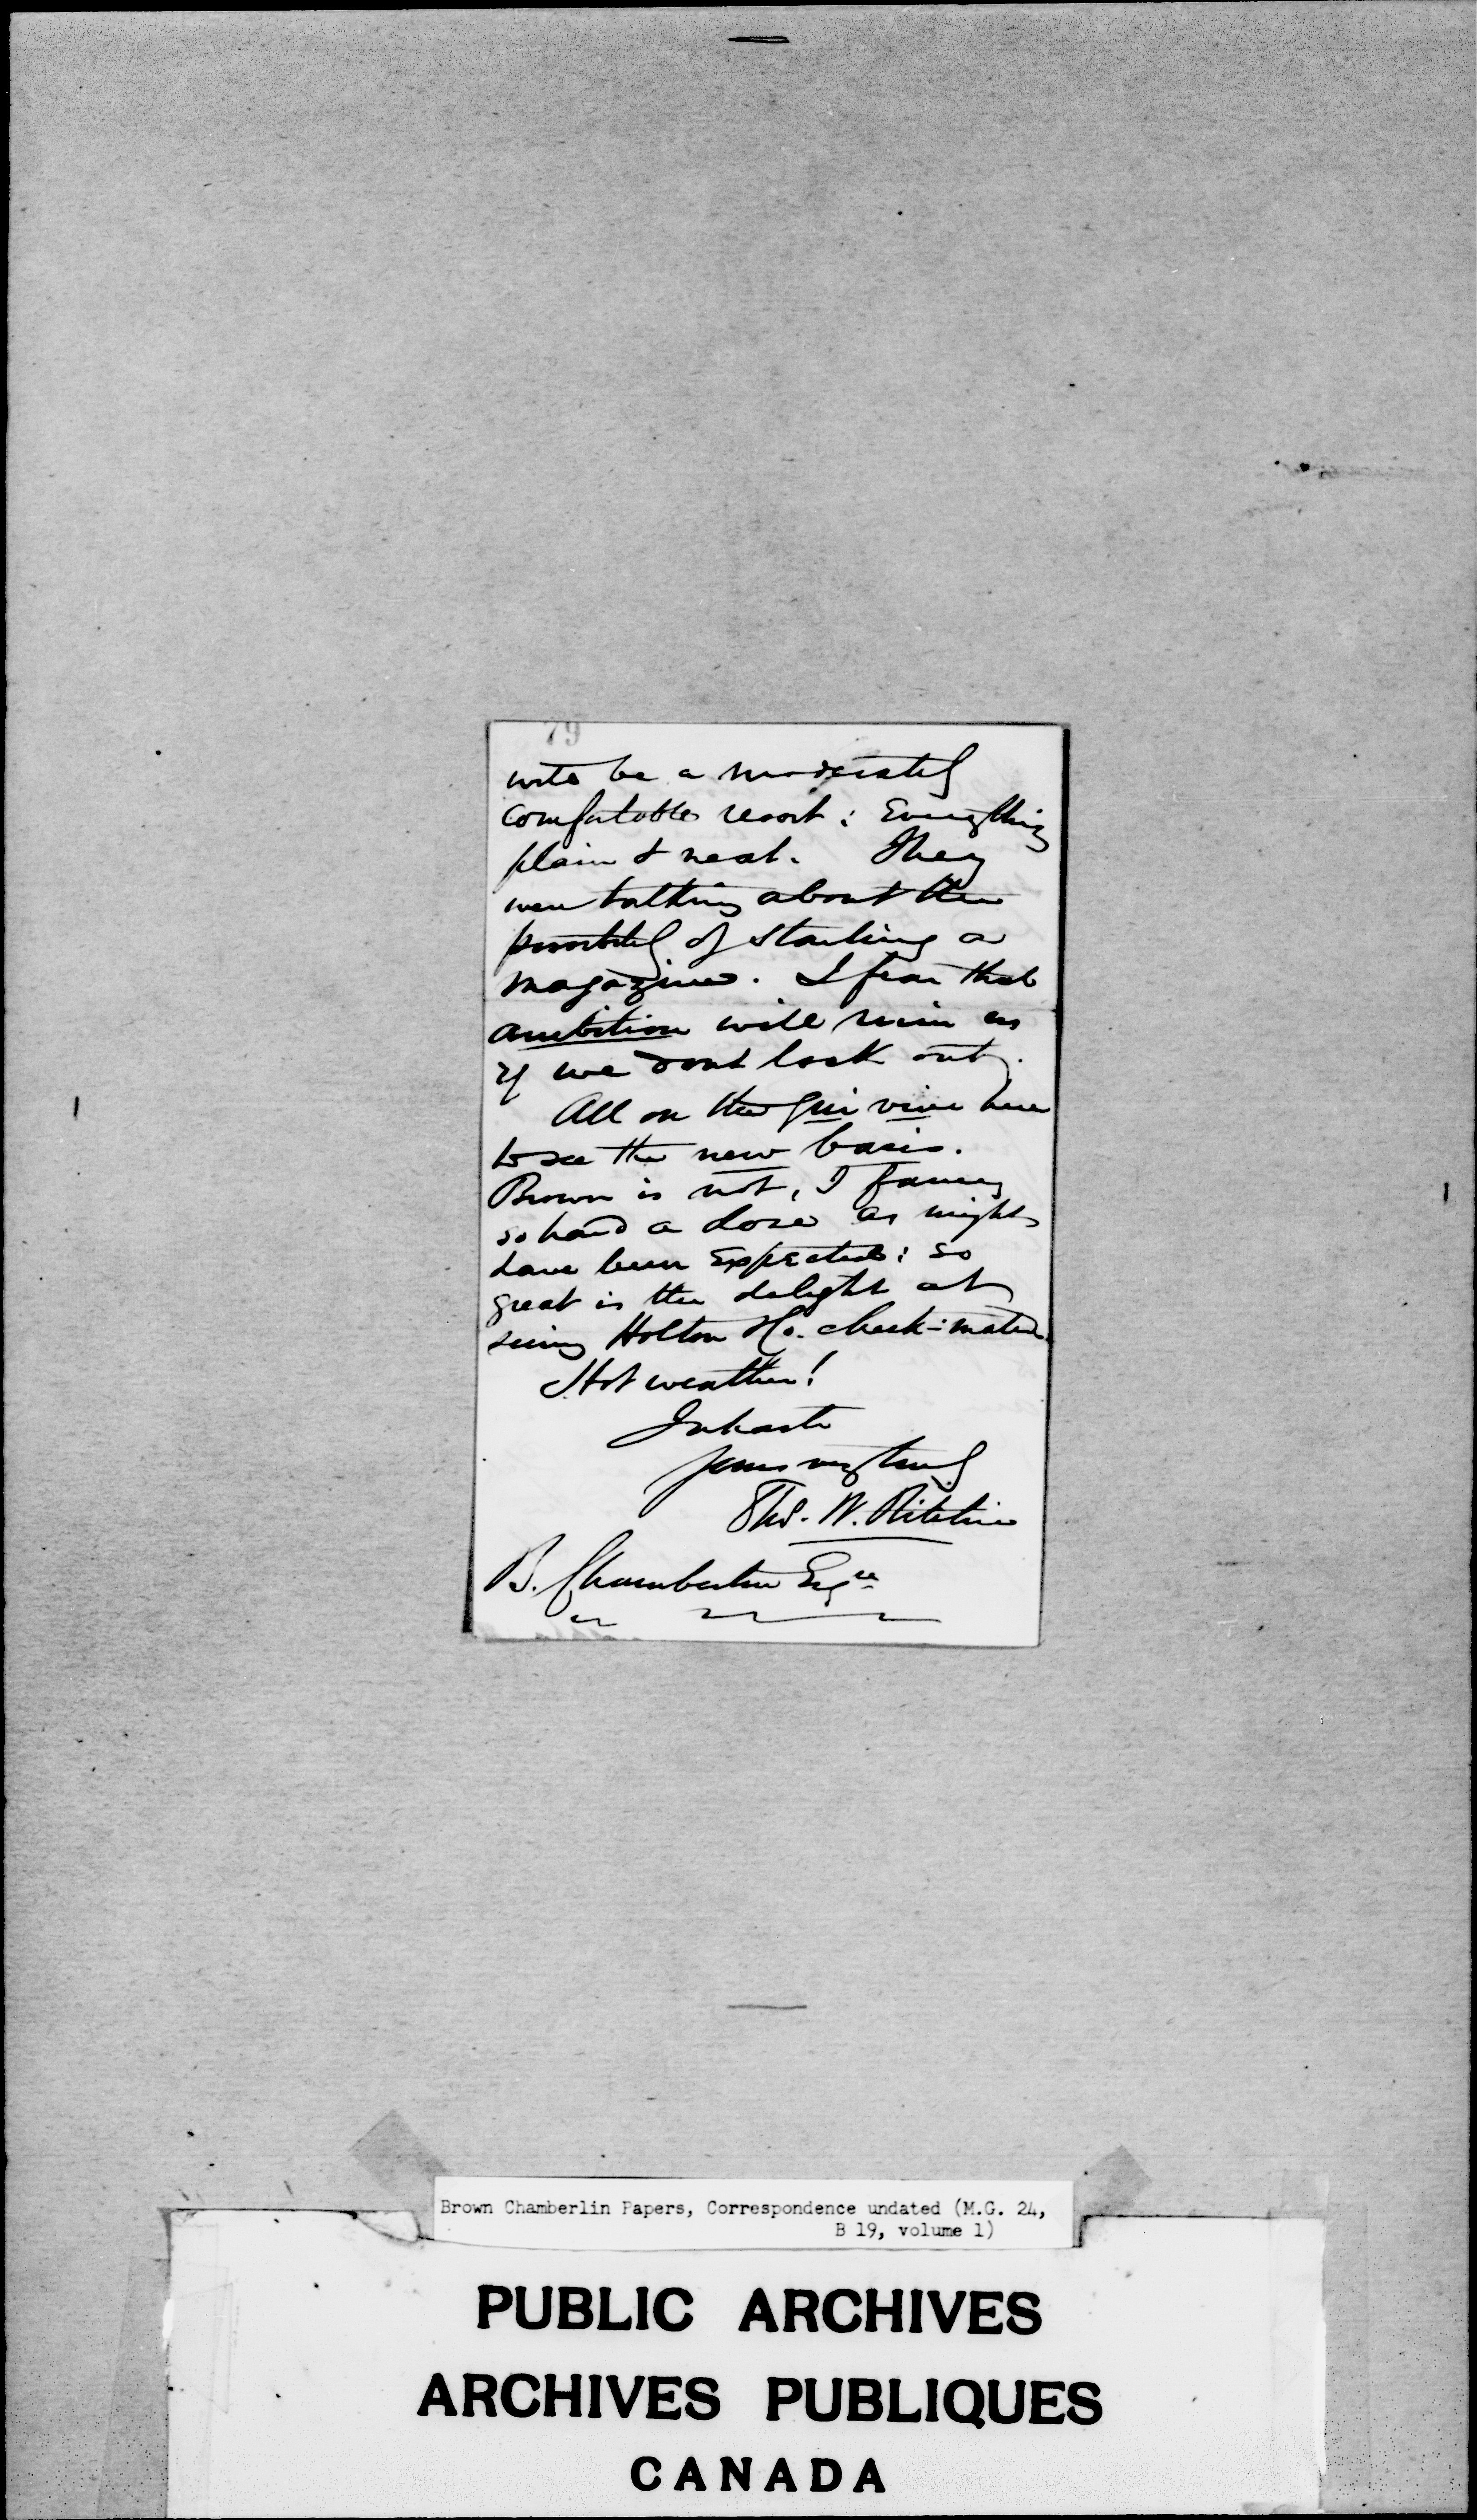 79
into be a moderately
comfortable resort: Everything
plain & neat. They
were talking about the
possibility of starting a
magazine. I fear that
ambition will ruin us
if we dont look out.
All on the qui vive here
to see the new basis.
Brown is not, I fancy
so hard a dose as might
have been expected: so
great is the delight at
seeing Holton & Co. check-mated.
Hot weather!
In haste
Yours very truly
Thos. W. Ritchie
B. Chamberlin Esqre
Brown Chamberlin Papers, Correspondence undated (M.G. 24,
B 19, volume 1)
PUBLIC ARCHIVES
ARCHIVES PUBLIQUES
CANADA